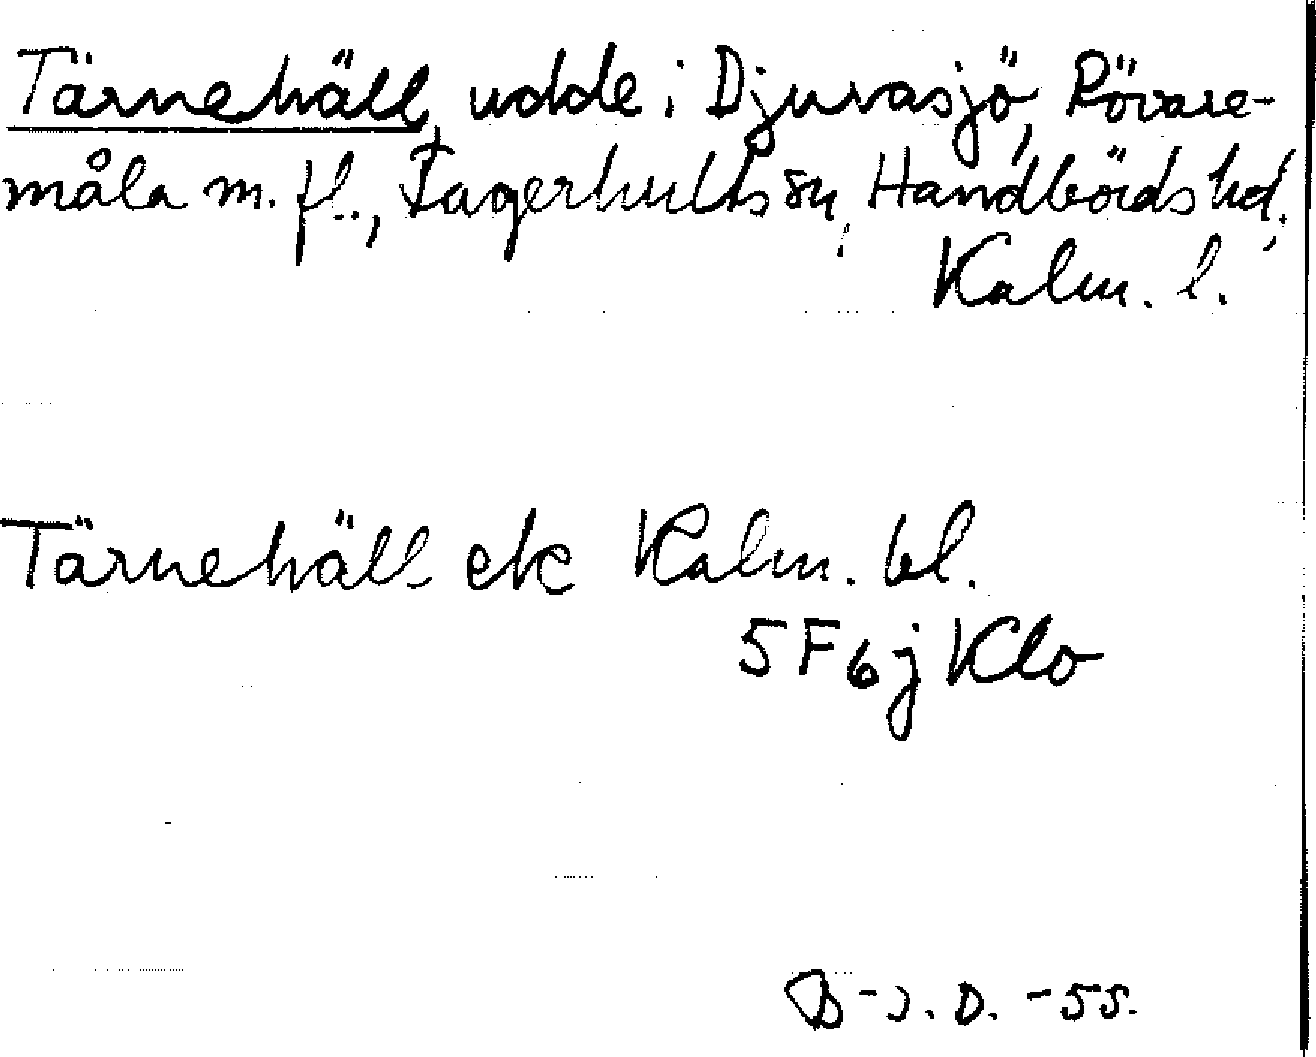 Tärnehäll, udde i Djuvasjö, Rövare-
måla m. fl., Fagerhults sn, Handbörds hd,
Kalm. l.
Tärnehäll ek Kalm. bl.
5F6j Klo
B-J. D. -55.